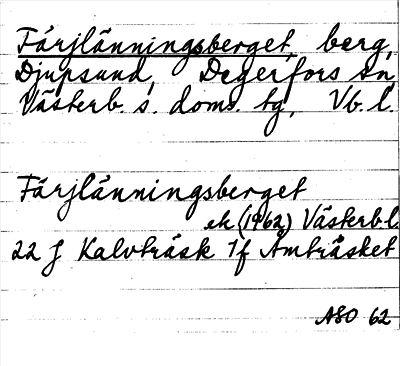 Färjlänningsberget, berg,
Djupsund, Degerfors sn,
Västerb. s. doms. tg, Vb. l.
Färjlänningsberget
ek (1962) Västerb.l.
22 J Kalvträsk 7f Åmträsket
ASO 62